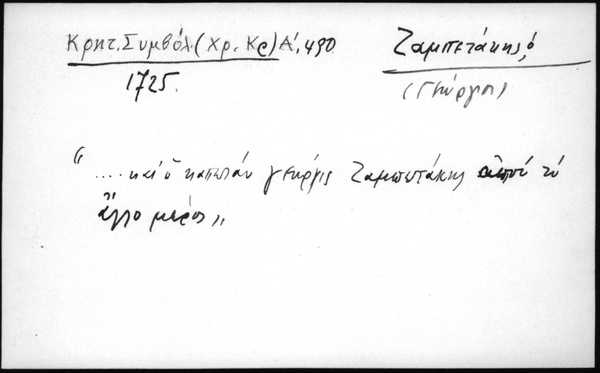 Κρητ. Συμβόλ. (Χρ. Κρ) Α', 490.
1725.
Ζαμπετάκης, ὁ
(Γεώργιος)
"....καί ὁ καπετάν γεώργις Ζαμπετάκης ἀπό τό
ἄλλο μέρος„